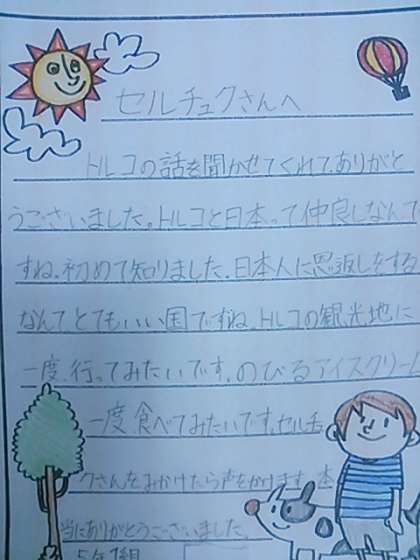 セルチュクさんへ
トルコの話を聞かせてくれてありがと
うございました。トルコと日本って仲良しなんで
すね。初めて知りました。日本人に恩返しをする
なんてとてもいい国ですね。トルコの観光地に
一度、行ってみたいです。のびるアイスクリーム
一度食べてみたいです。セルチュ
クさんをみかけたら声をかけます。本
当にありがとうございました。
5年1組